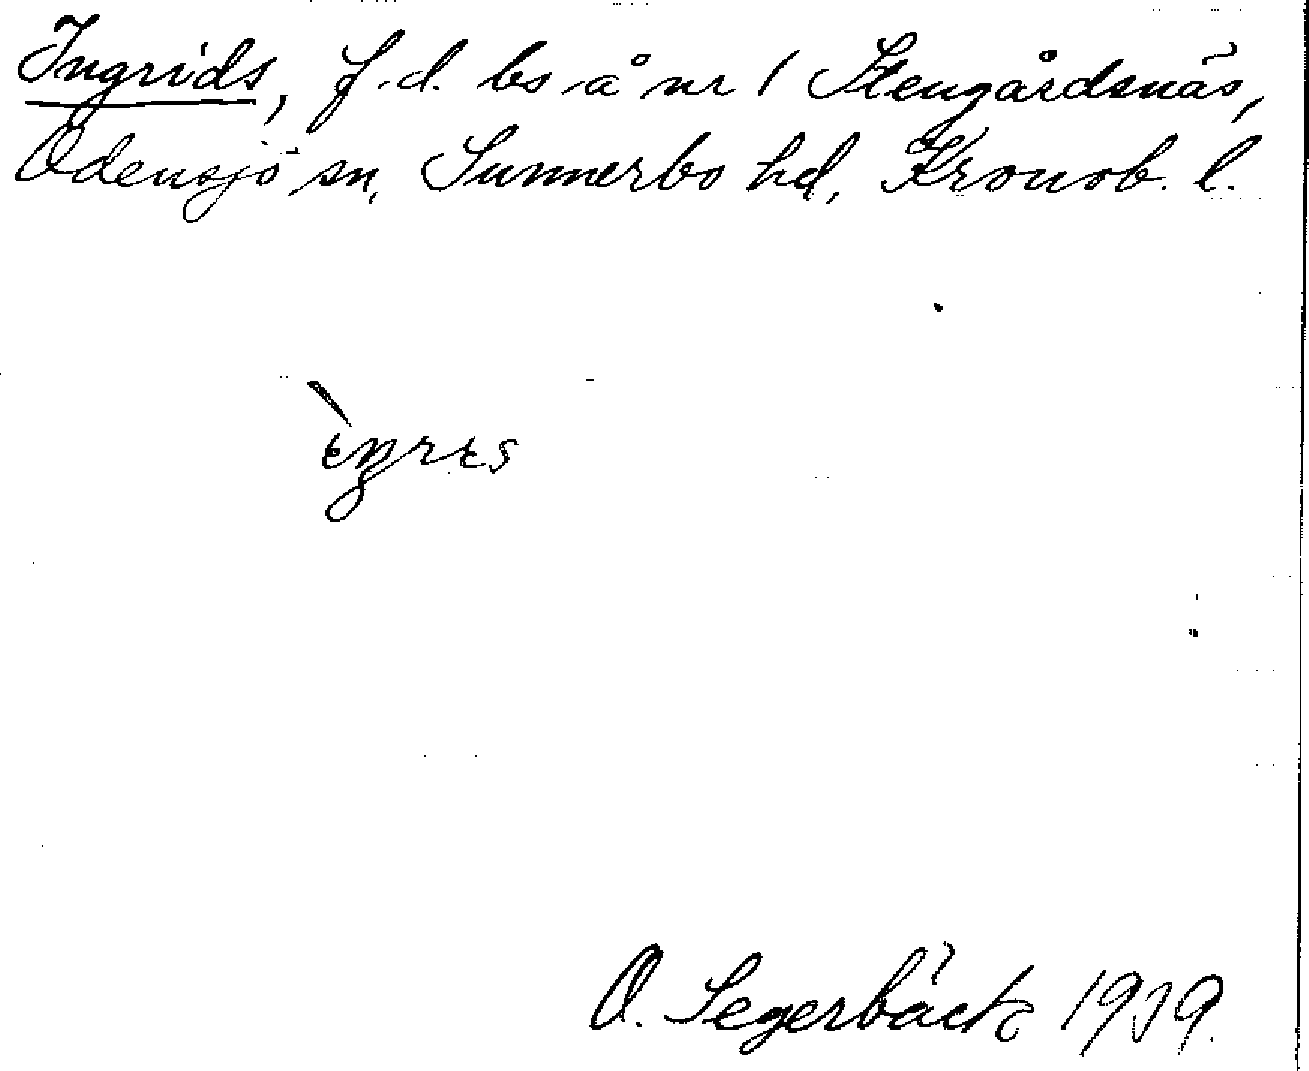 Ingrids, f.d. bs å nr 1 Stengårdsnäs,
Odensjö sn, Sunnerbo hd, Kronob. l.
O. Segerbäck 1939.